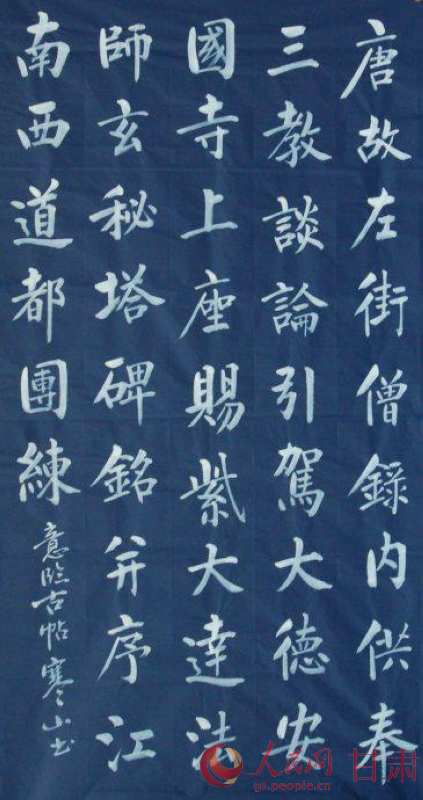 唐故左街僧錄内供奉
三教談論引駕大德安
國寺上座賜紫大達法
師玄秘塔碑銘并序江
南西道都團練
意臨古帖寒山書
人民网 甘肃
gs.people.cn